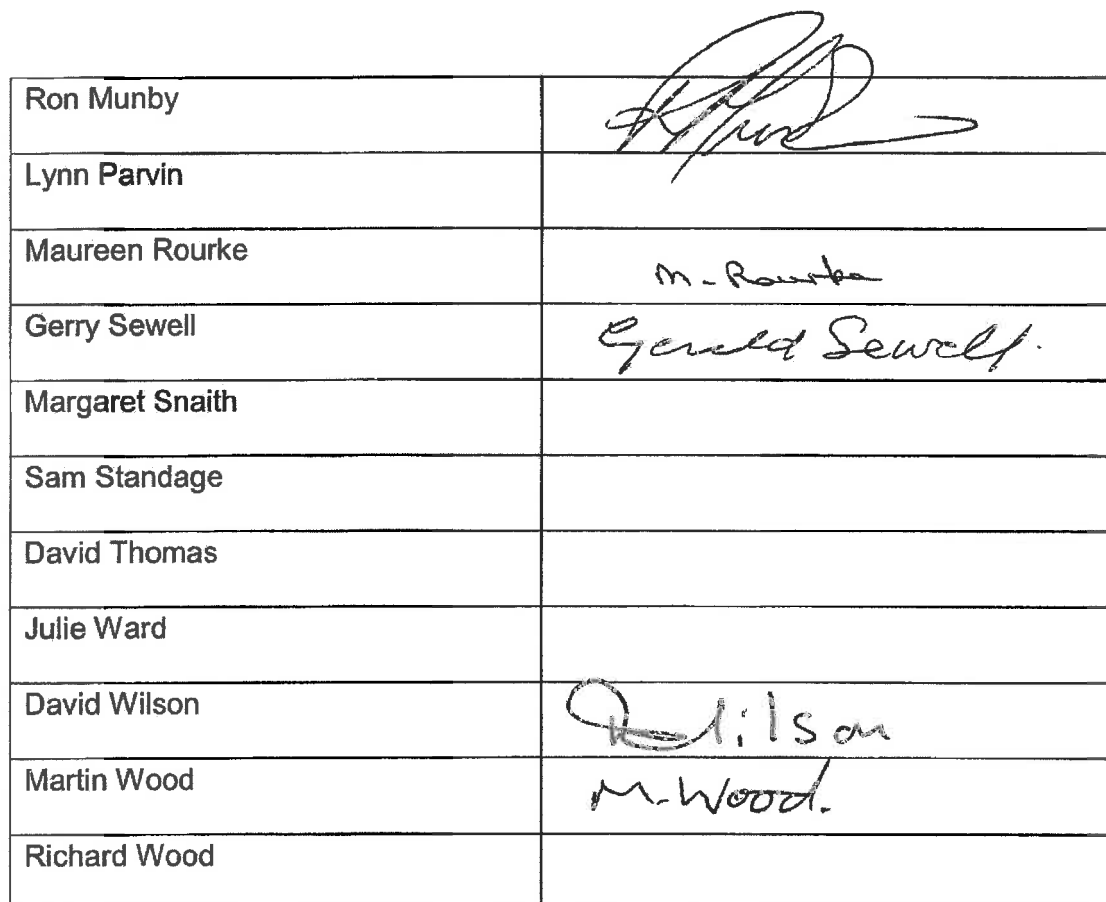 Ron Munby
Lynn Parvin
Maureen Rourke M. Rourke
Gerry Sewell Gerald Sewell.
Margaret Snaith
Sam Standage
David Thomas
Julie Ward
David Wilson Wilson
Martin Wood M. Wood.
Richard Wood